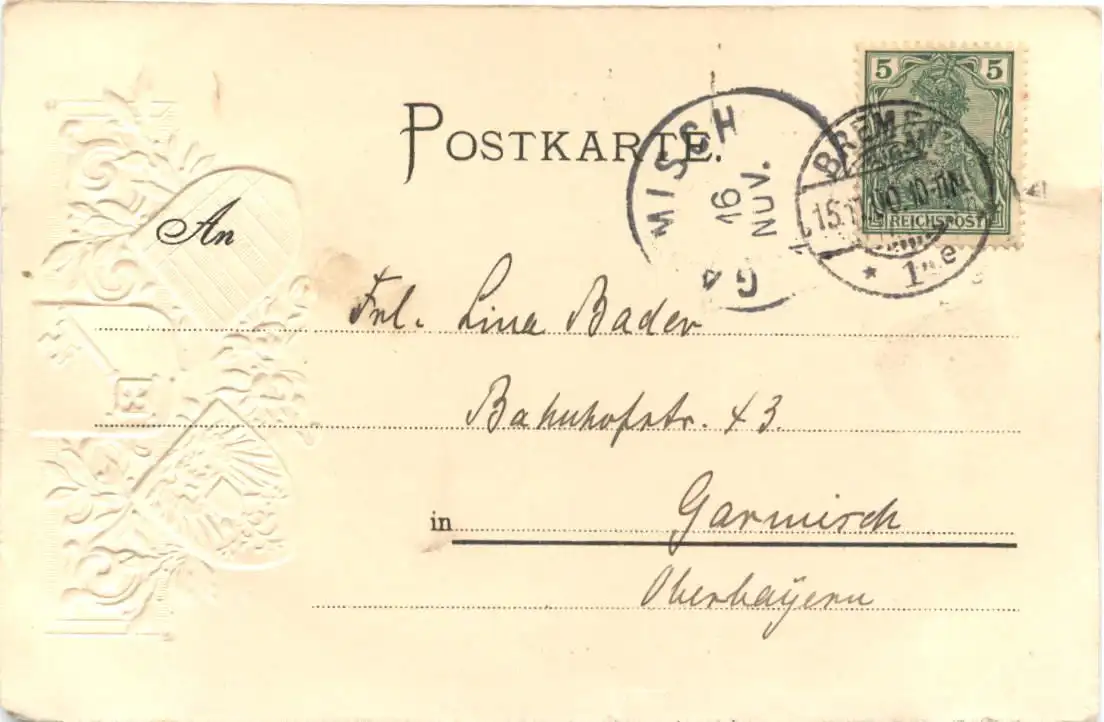 POSTKARTE.
5 5
REICHSPOST
BREMEN
15.11.00.10-11N.
* 1 e
MISCH
16
NOV.
GA
An
Frl. Lina Bader
Bahnhofstr. 43.
in Garmisch
Oberbayern